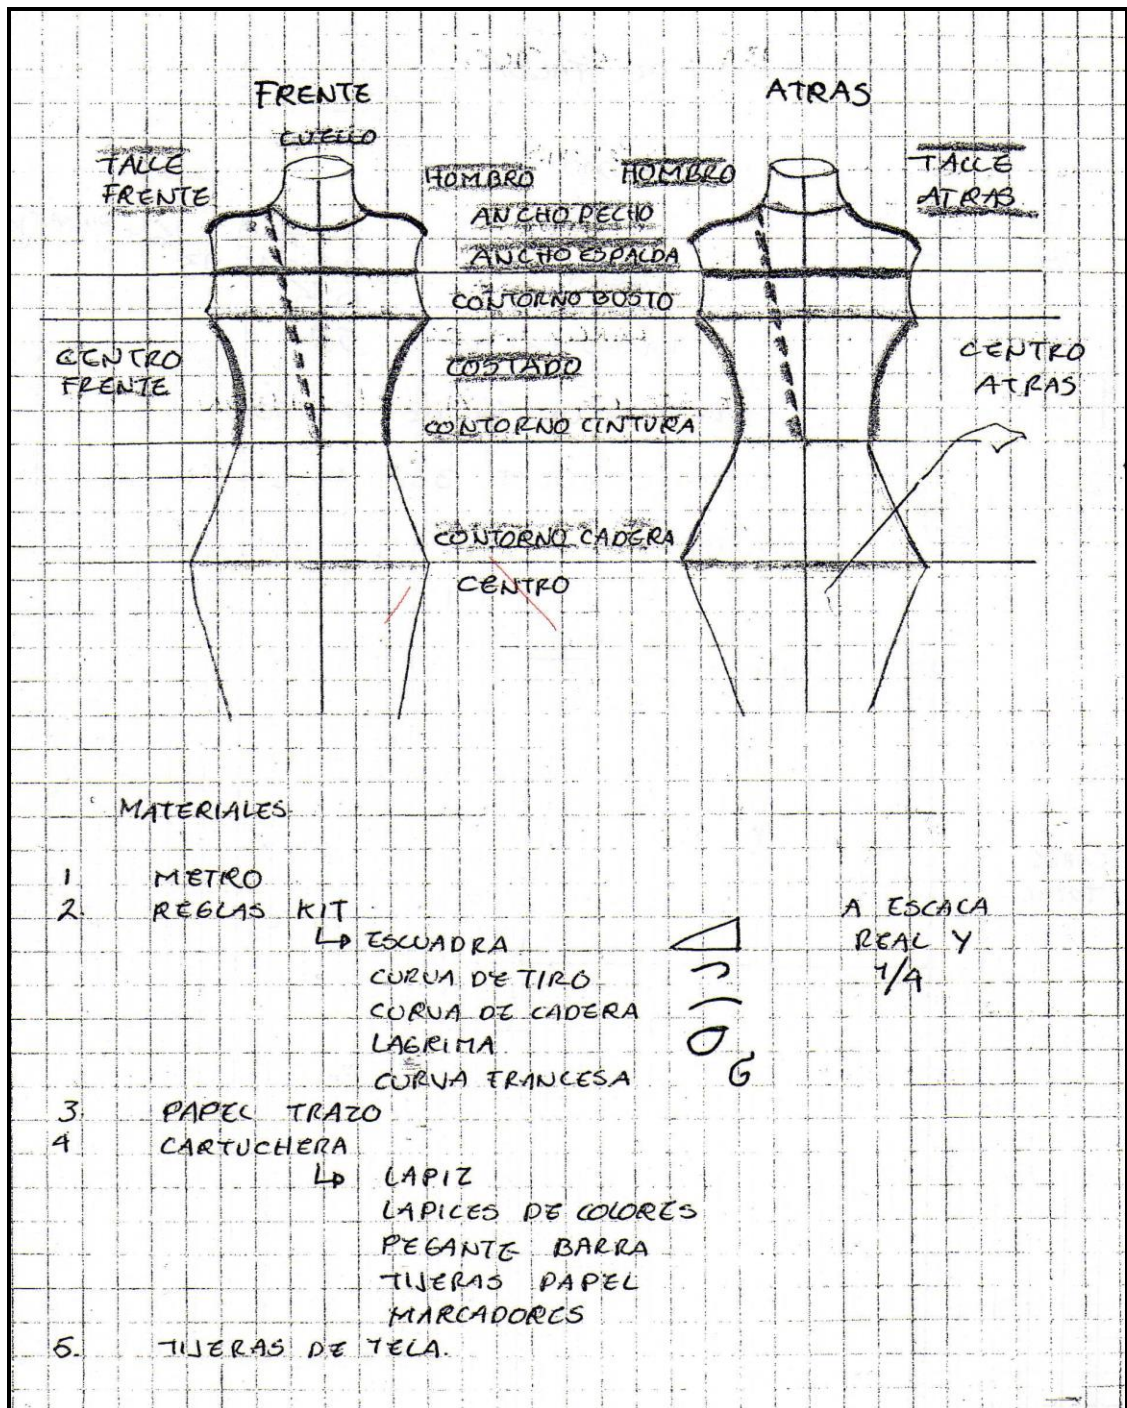 FRENTE
ATRAS
CUELLO
TALLE
FRENTE
HOMBRO
HOMBRO
TALLE
ATRAS
ANCHO PECHO
ANCHO ESPALDA
CONTORNO BUSTO
CENTRO
FRENTE
COSTADO
CENTRO
ATRAS
CONTORNO CINTURA
CONTORNO CADERA
CENTRO
MATERIALES
1 METRO
2. REGLAS KIT
ESCUADRA
CURVA DE TIRO
CURVA DE CADERA
LAGRIMA
CURVA FRANCESA
A ESCALA
REAL Y
1/4
3. PAPEL TRAZO
4 CARTUCHERA
LAPIZ
LAPICES DE COLORES
PEGANTE BARRA
TIJERAS PAPEL
MARCADORES
5. TIJERAS DE TELA.